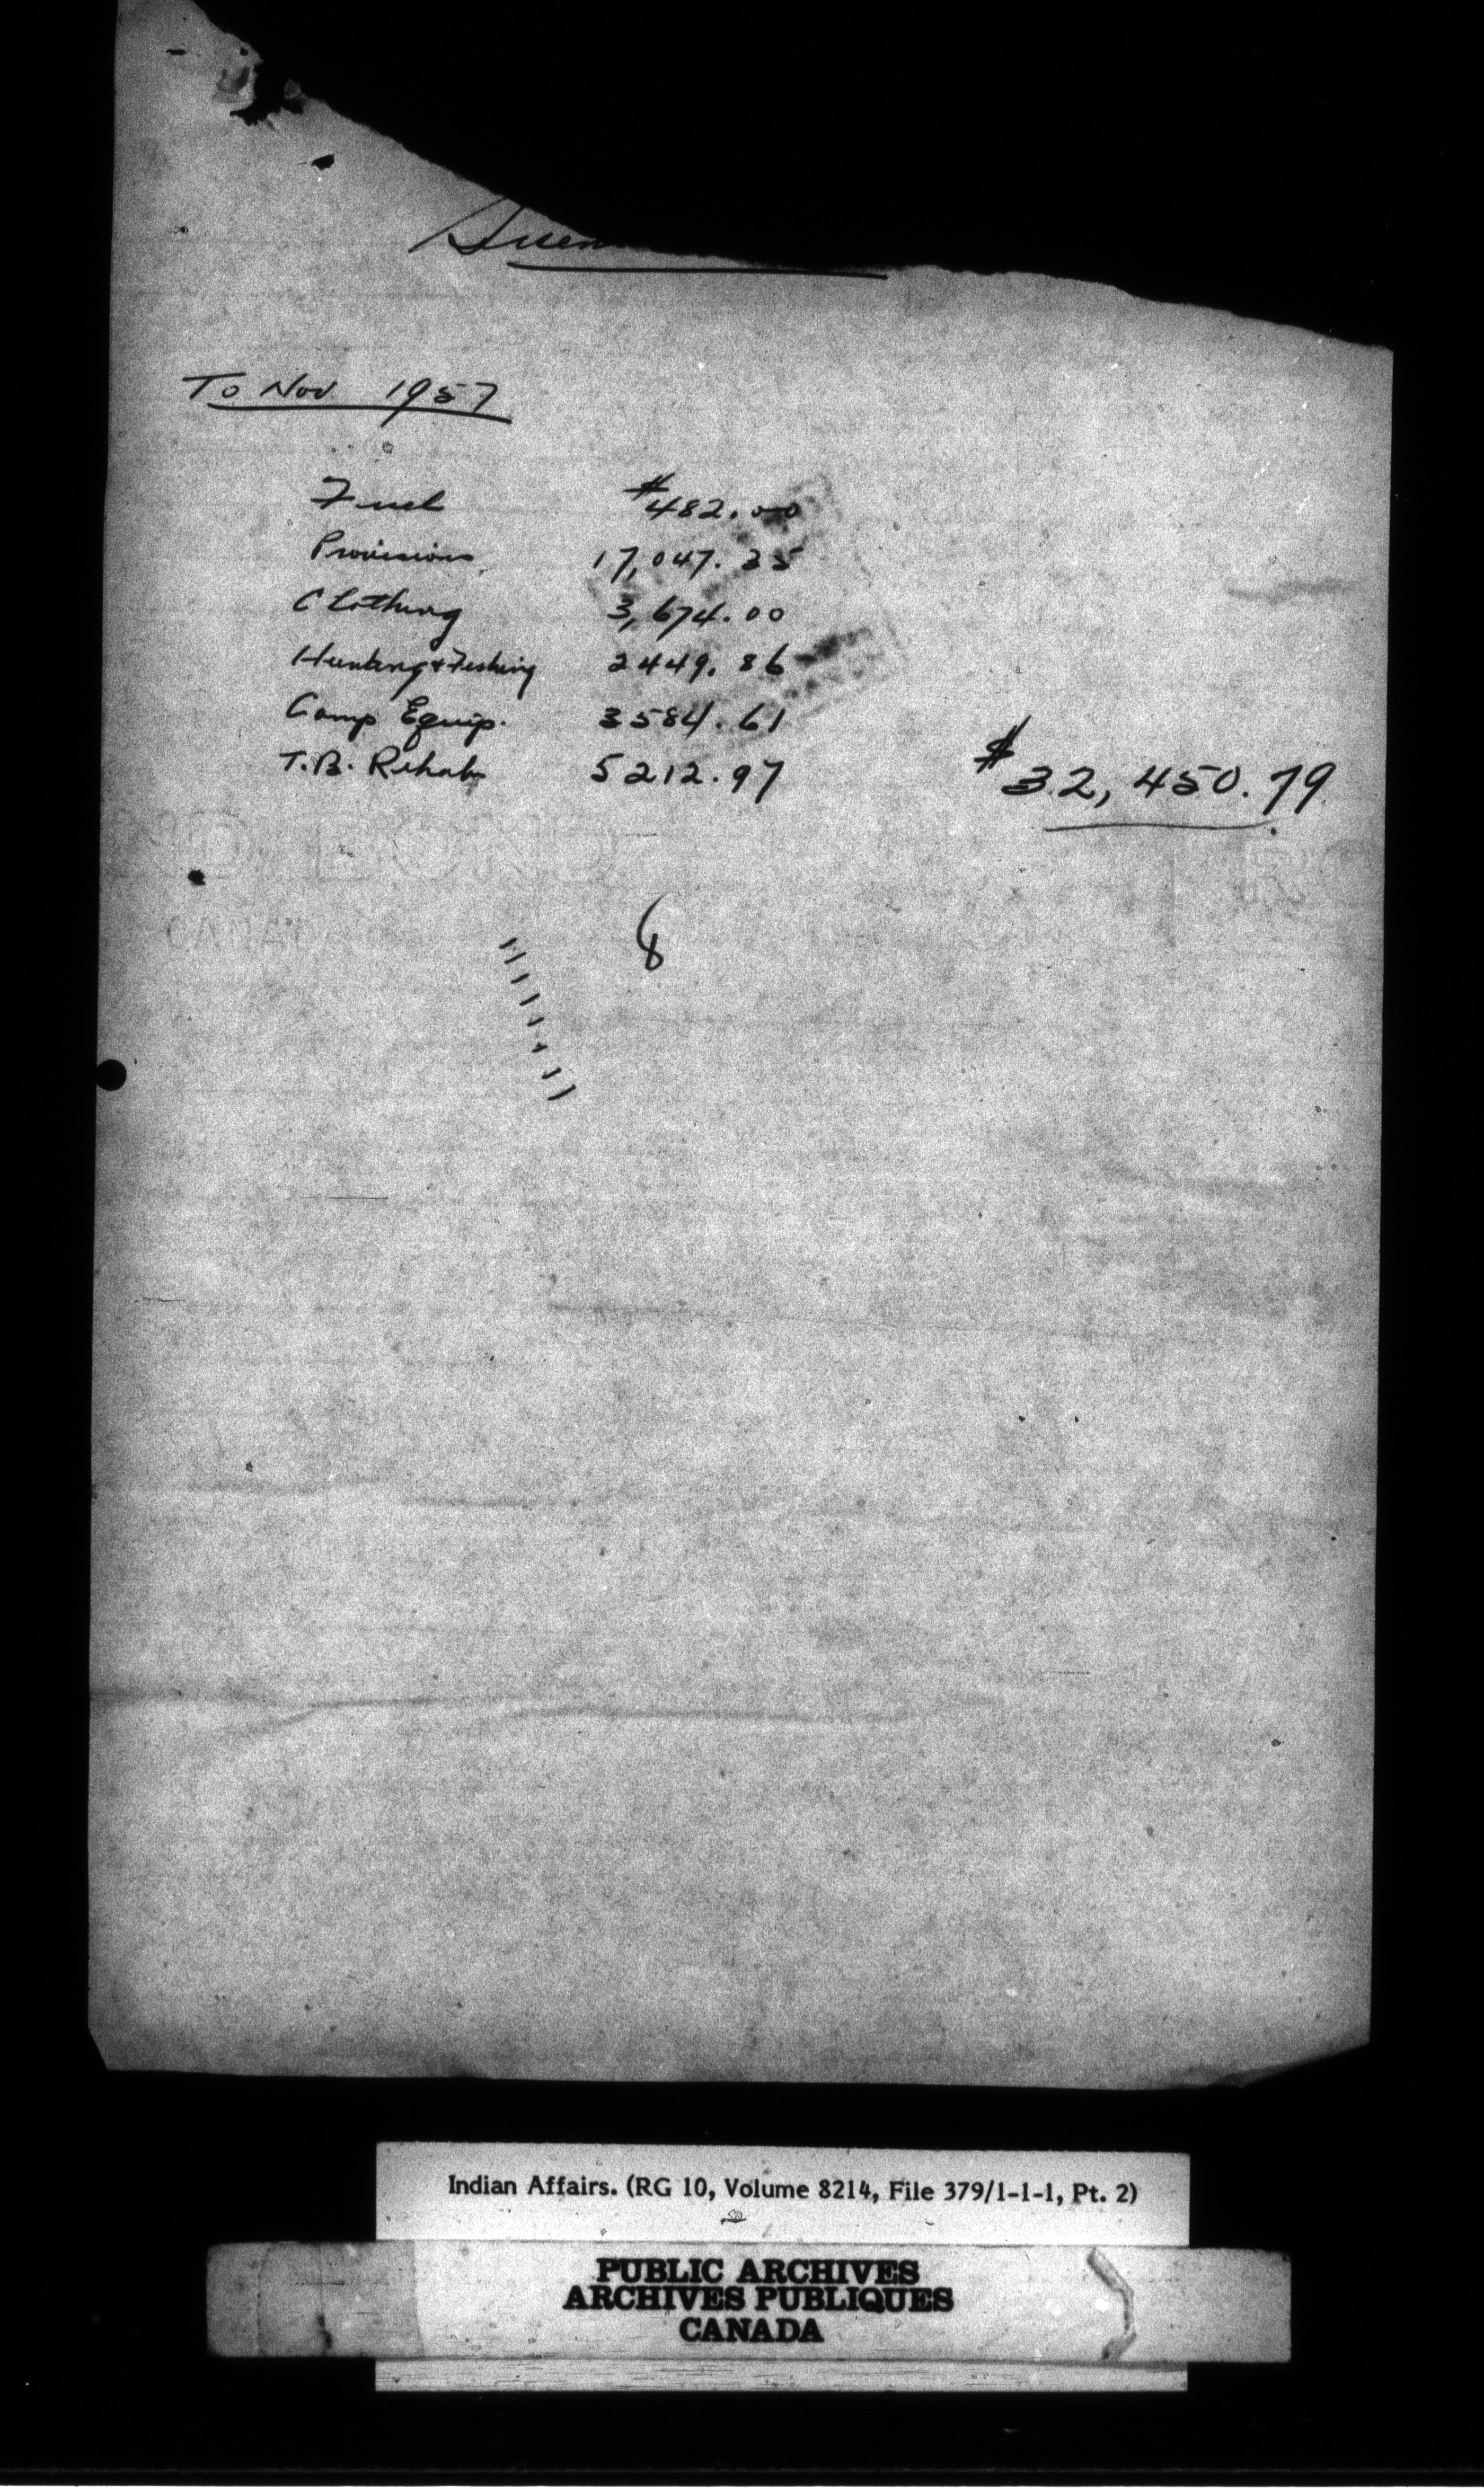 To Nov 1957
Fuel $482.00
Provisions 17,047.35
Clothing 3,674.00
Hunting & Fishing 2449.86
Camp Equip. 3584.61
T.B. Rehab 5212.97 $32,450.79
8
Indian Affairs. (RG 10, Volume 8214, File 379/1-1-1, Pt. 2)
PUBLIC ARCHIVES
ARCHIVES PUBLIQUES
CANADA